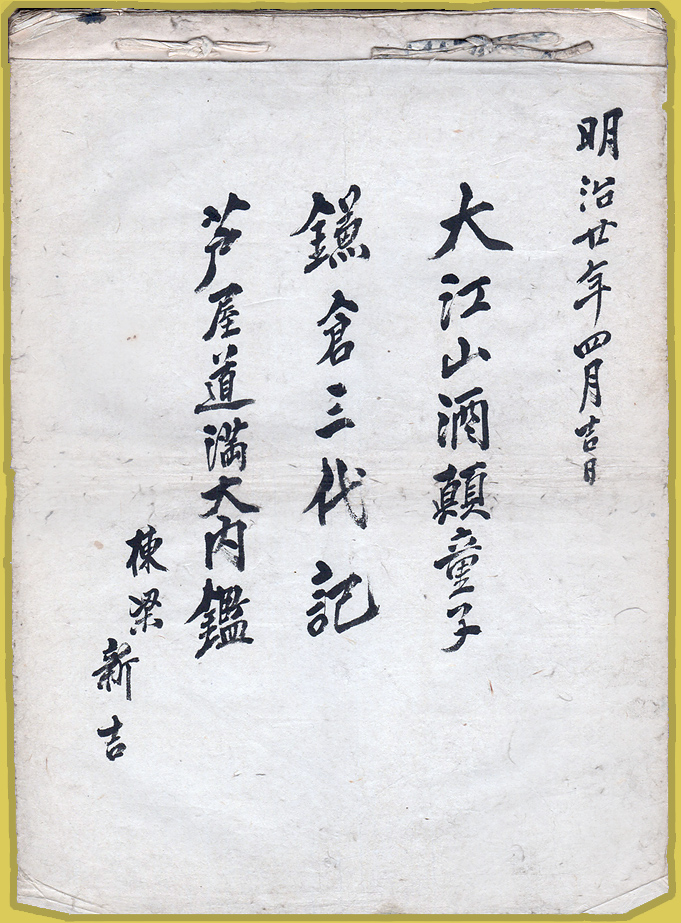 明治廿年四月吉日
大江山酒顛童子
鎌倉三代記
芦屋道満大内鑑
棟梁新吉